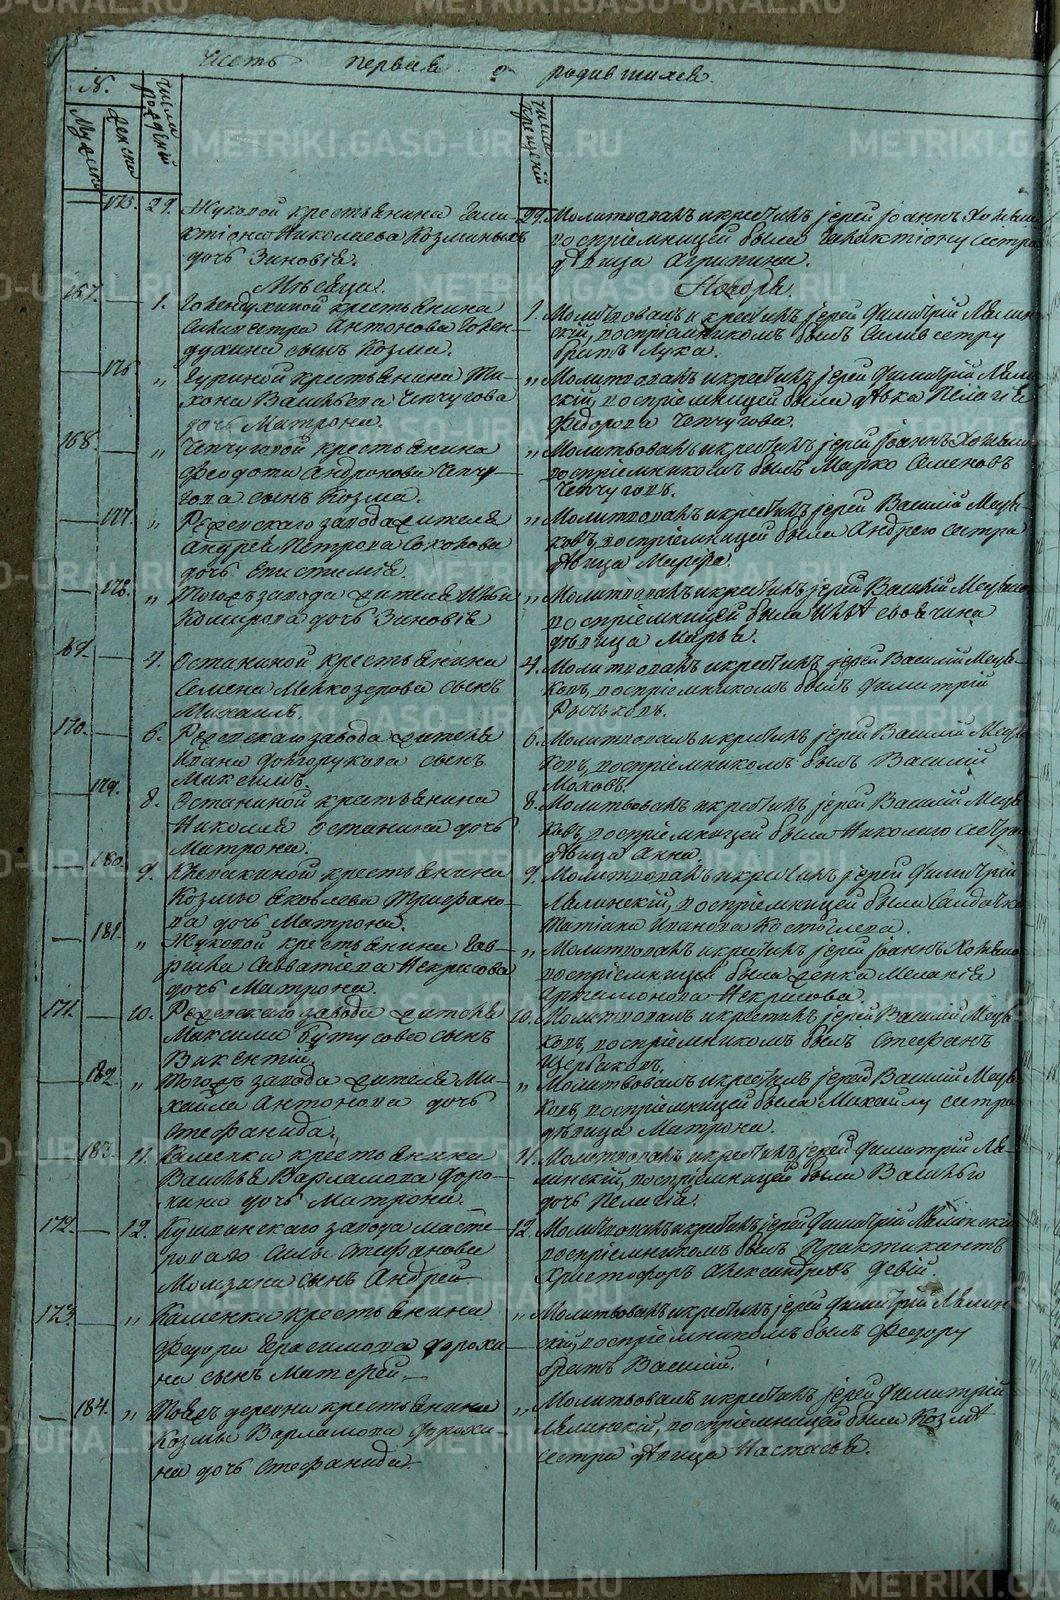 Часть первая о родившихся
№.
Мужеска
Женска
Числа рождений
Числа крещений
173. 29. Жуковой крестьянина Гала-
ктиона Николаева Козминыхъ
дочь Зиновія.
29. Молитвовалъ и крестилъ іерей Іоаннъ
воспріемницей была Галактіону сестра
дѣвица Агрипина.
Мѣсяца. Ноября.
167. 1. крестьянина
Силивестра Антонова
сынъ Козма.
1. Молитвовалъ и крестилъ іерей Димитрій Ляпин-
скій, воспріемникомъ былъ Силивестру
братъ Лука.
175 „ крестьянина Ти-
хона Васильева Чепчугова
дочь Матрона.
„ Молитвовалъ и крестилъ іерей Димитрій
скій, воспріемницей была дѣвка Пелагія
Федорова Чепчугова.
168. „ Чепчуговой крестьянина
Феодота Андронова Чепчу-
гова сынъ Козма.
„ Молитвовалъ и крестилъ іерей Іоаннъ
воспріемникомъ былъ Марко Семеновъ
Чепчуговъ.
177. „ Режевскаго завода жителя
Андрея Петрова
дочь Епистимія.
„ Молитвовалъ и крестилъ іерей Василій
ковъ, воспріемницей была Андрею сестра
дѣвица Марфа.
178. „ Тогожъ завода жителя Ильи
Комирова дочь Зиновія
„ Молитвовалъ и крестилъ іерей Василій
воспріемницей была Ильѣ своячина
дѣвица Марья.
169. 4. Останиной крестьянина
Семена Мелкозерова сынъ
Михаилъ.
4. Молитвовалъ и крестилъ іерей Василій
ковъ, воспріемникомъ былъ Димитрій
Рычковъ.
170. 6. Режевскаго завода жителя
Ивана Долгорукова сынъ
Максимъ.
6. Молитвовалъ и крестилъ іерей Василій
ковъ, воспріемникомъ былъ Василій
Моховъ.
179. 8. Останиной крестьянина
Николая Останина дочь
Матрона.
8. Молитвовалъ и крестилъ іерей Василій
ковъ, воспріемницей была Николаю сестра
дѣвица Анна.
180. 9. Клевакиной крестьянина
Козмы Яковлева Трифано-
ва дочь Матрона.
9. Молитвовалъ и крестилъ іерей Димитрій
Ляпинскій, воспріемницей была Солдатка
Татіана Иванова Костылева.
181. „ Жуковой крестьянина Гав-
рила Савватіева Некрасова
дочь Матрона.
„ Молитвовалъ и крестилъ іерей Іоаннъ
воспріемницей была женка Меланія
Артамонова Некрасова.
171. 10. Режевскаго завода жителя
Максима Бутусова сынъ
Викентій.
10. Молитвовалъ и крестилъ іерей Василій
ковъ, воспріемникомъ былъ Стефанъ
Щербаковъ.
182. „ Тогожъ завода жителя Ми-
хайла Антонова дочь
Стефанида.
„ Молитвовалъ и крестилъ іерей Василій
ковъ, воспріемницей была Михайлу сестра
дѣвица Матрона.
183. 11. Каменки крестьянина
Василья Варламова Доро-
хина дочь Матрона.
11. Молитвовалъ и крестилъ іерей Димитрій Ля-
пинскій, воспріемницей была Васильа
дочь Пелагія.
172. 12. Кушвинскаго завода масте-
роваго Силы Стефанова
Момзина сынъ Андрей
12. Молитвовалъ и крестилъ іерей Димитрій Ляпинскій
воспріемникомъ былъ Практикантъ
Христофоръ Александровъ Девій.
173. „ Каменки крестьянина
Федора Герасимова Дорохи-
на сынъ Матфей.
„ Молитвовалъ и крестилъ іерей Димитрій Ляпин-
скій, воспріемникомъ былъ Федору
братъ Василій.
184. „ Тоежъ деревни крестьянина
Козмы Варламова Дорохи-
на дочь Стефанида.
„ Молитвовалъ и крестилъ іерей Димитрій
Ляпинскій, воспріемницей была Козмѣ
сестра дѣвица Настасья.
METRIKI.GASO-URAL.RU